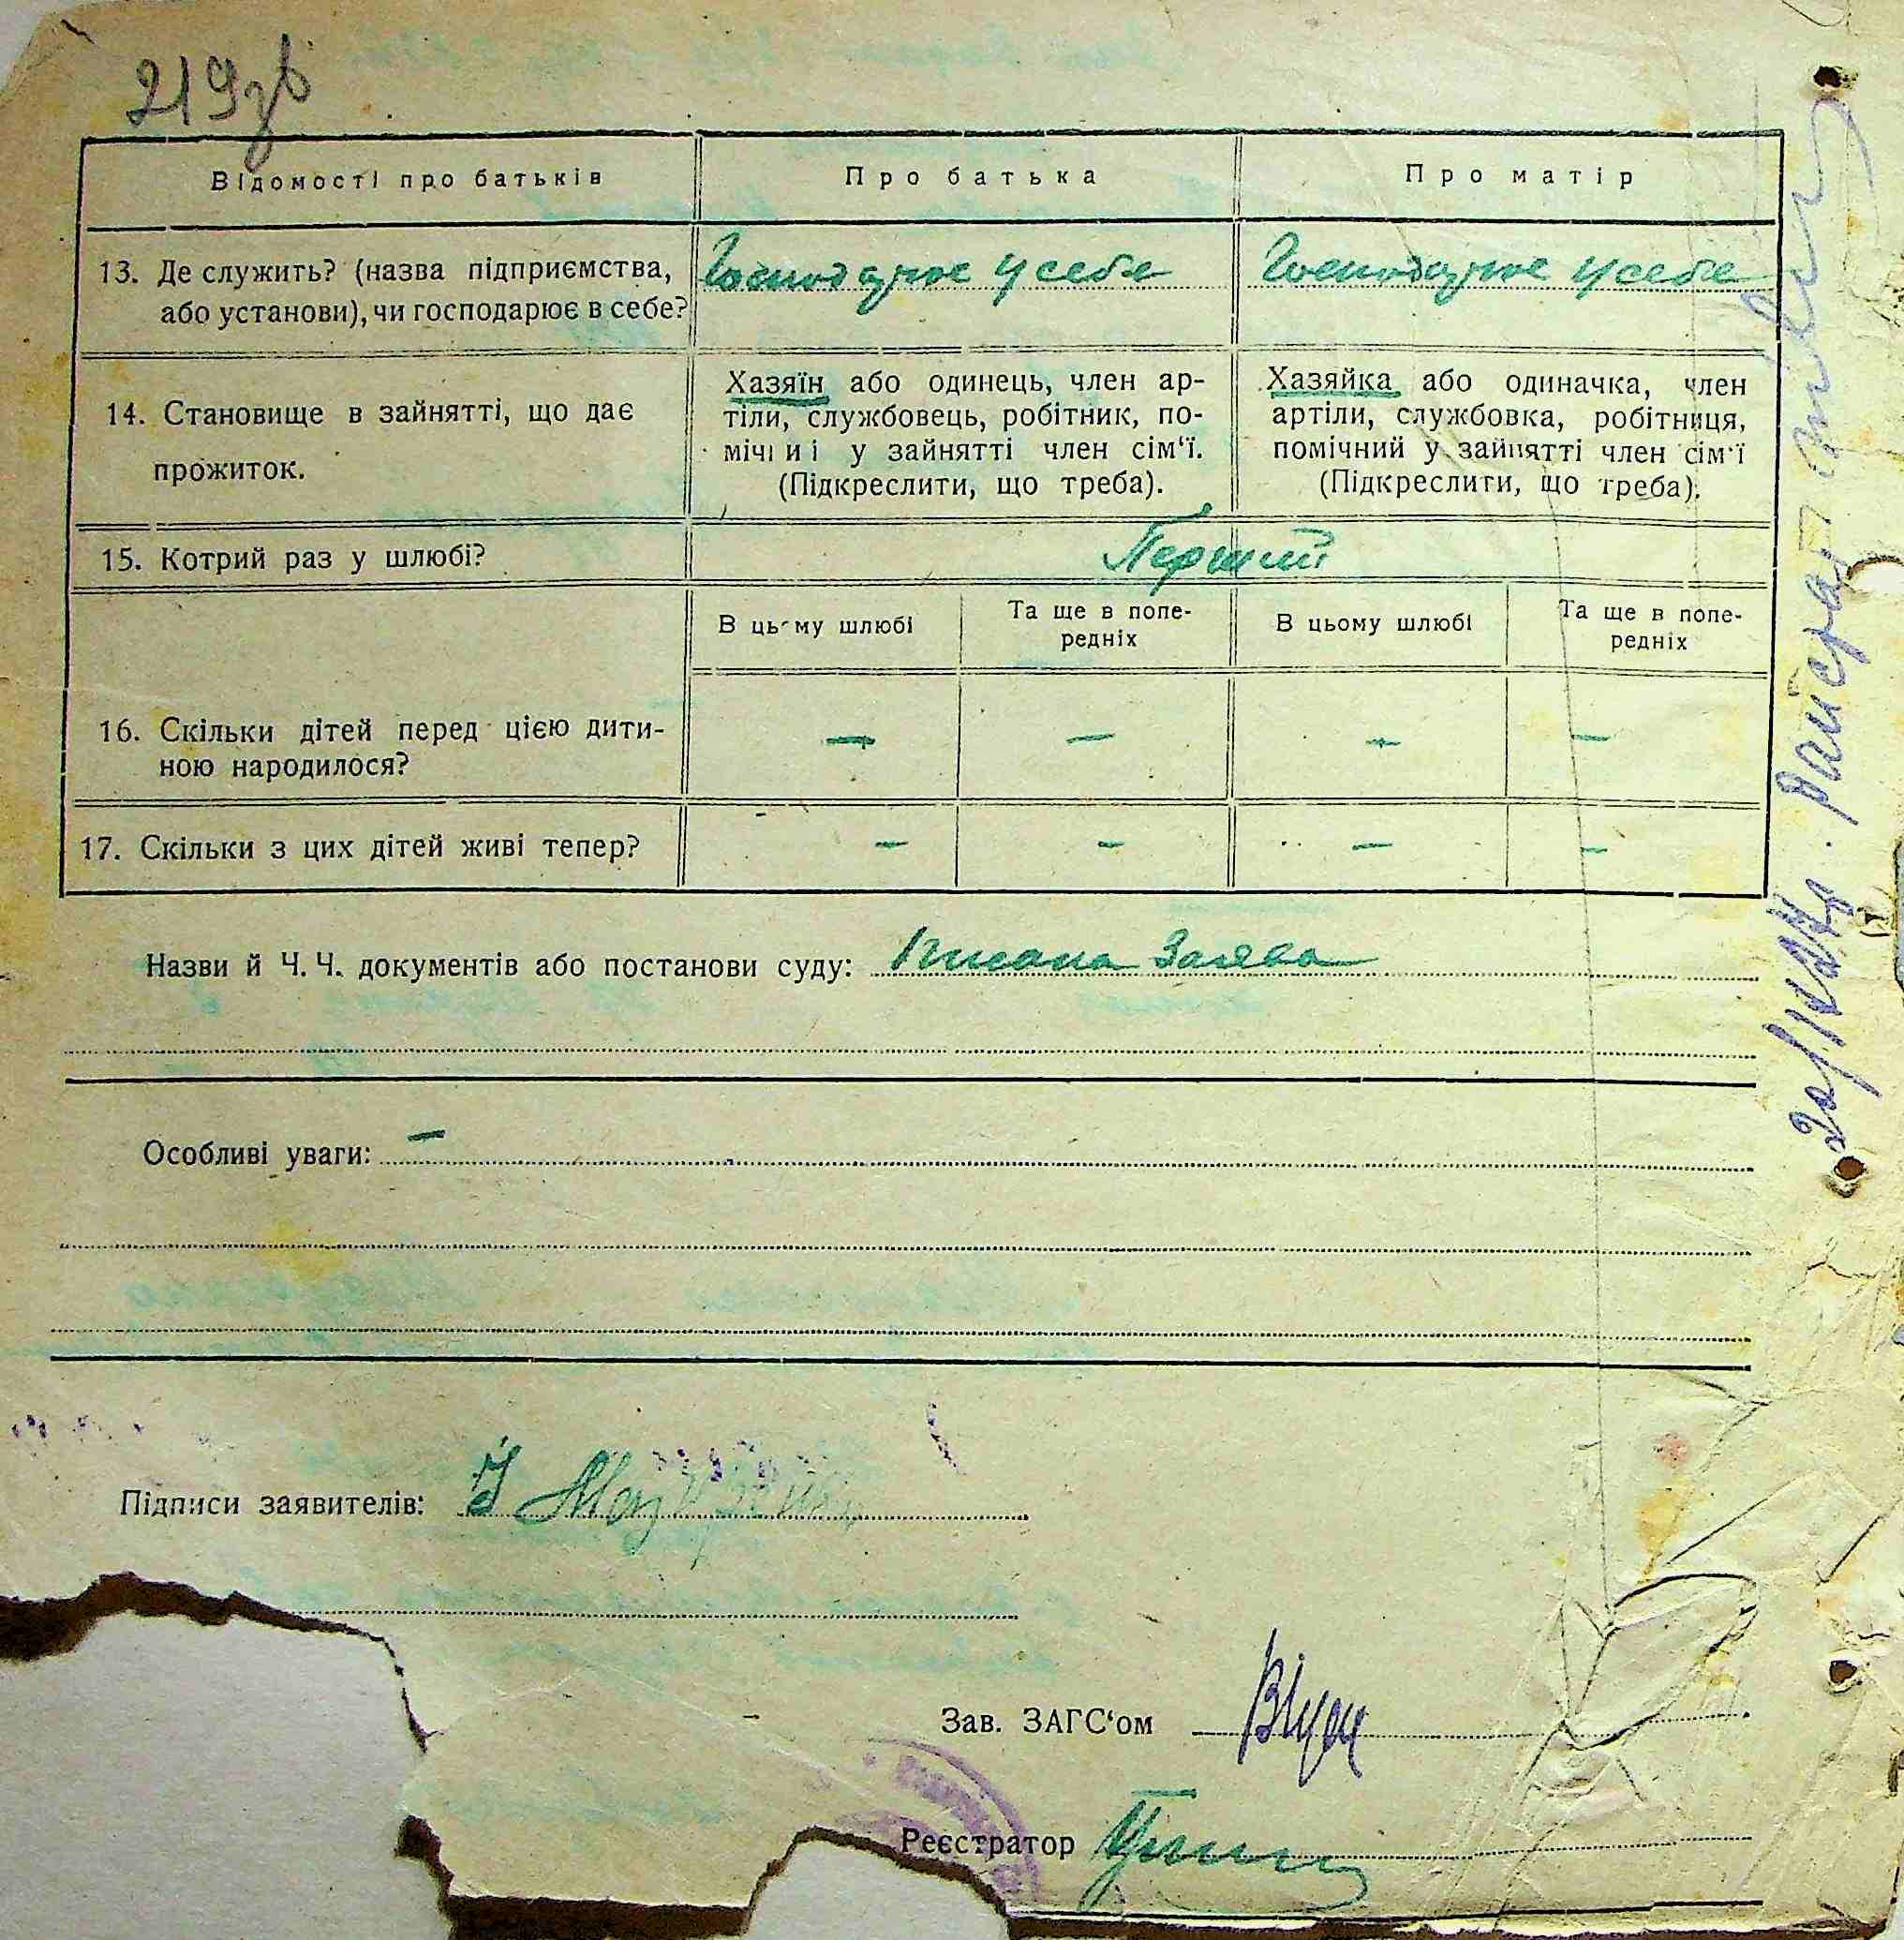 219зв
Відомості про батьків Про батька Про матір
13. Де служить? (назва підприємства, Господарює у себе Господарює у себе
або установи), чи господарює в себе?
14. Становище в зайнятті, що дає прожиток.
Хазяїн або одинець, член ар-
тіли, службовець, робітник, по-
мічн и і у зайнятті член сім‘ї.
(Підкреслити, що треба).
Хазяйка або одиначка, член
артіли, службовка, робітниця,
помічний у зайнятті член сім‘ї
(Підкреслити, що треба).
15. Котрий раз у шлюбі? Перший
В цьому шлюбі Та ще в попе-
редніх
В цьому шлюбі Та ще в попе-
редніх
16. Скільки дітей перед цією дити- — — — —
ною народилося?
17. Скільки з цих дітей живі тепер? — — — —
Назви й Ч. Ч. документів або постанови суду: Писана Заява
Особливі уваги: —
Підписи заявителів:
Зав. ЗАГС‘ом
Реєстратор